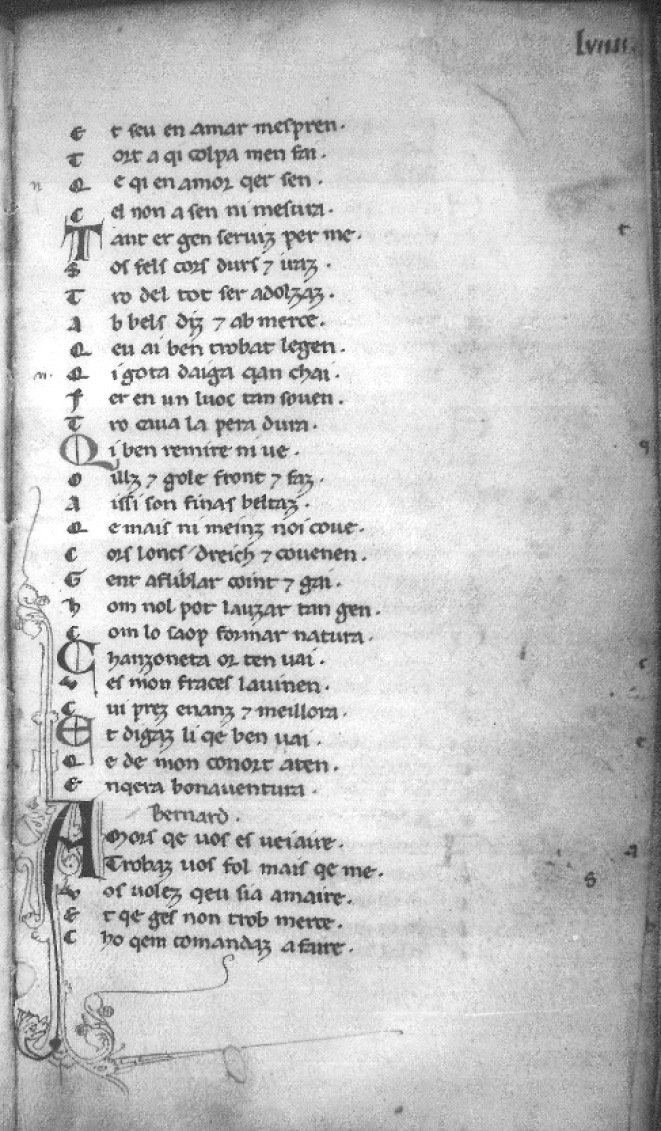 Lviiii.
E t seu en amar mespren.
T ort a qi colpa men fai.
Q e qi en amor qer sen.
C el non a sen ni mesura.
T ant er gen serviz per me.
S os fels cors durs 7 iraz.
T ro del tot ser adolzaz.
A b bels diz 7 ab merce.
Q eu ai ben trobat legen.
Q i gota daiga qan chai.
F er en un luoc tan soven.
T ro cava la pera dura.
Q i ben remire ni ve.
O illz 7 gole front 7 faz.
A issi son finas beltaz.
Q e mais ni meinz noi cove.
C ors loncs dreich 7 covenen.
G ent afliblar coint 7 gai.
h om nol pot lauzar tan gen.
C om lo saop formar natura.
C hanzoneta or ten vai.
V es mon frances lavinen.
C ui prez enanz 7 meillora.
E t digaz li qe ben vai.
Q e de mon conort aten.
E nqera bonaventura.
Bernard.
A Mors qe vos es veiaire.
Trobaz vos fol mais qe me.
V os volez qeu sia amaire.
E t qe ges non trob merce.
C ho qem comandaz a faire.